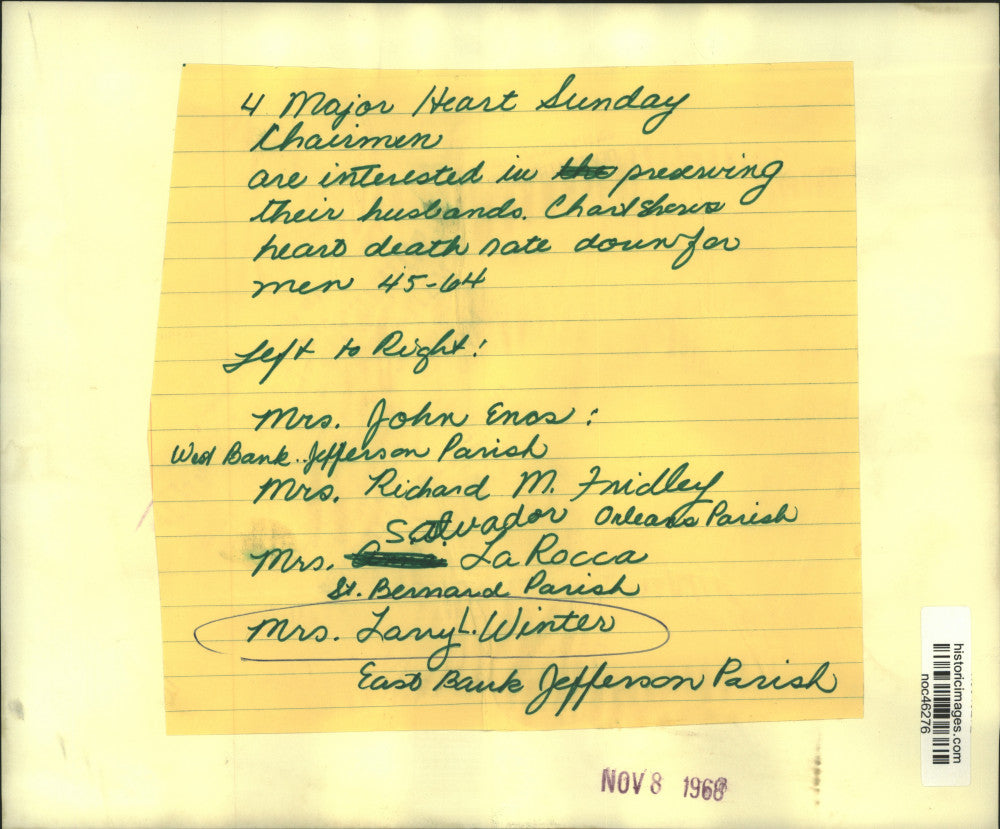 4 Major Heart Sunday
Chairmen
are interested in the preserving
their husbands. Chart shows
heart death rate down for
men 45-64
Left to Right:
Mrs. John Enos:
West Bank. Jefferson Parish
Mrs. Richard M. Fridley
Orleans Parish
Salvador
Mrs. La Rocca
St. Bernard Parish
Mrs. Larry L. Winter
East Bank Jefferson Parish
NOV 8 1968
historicimages.com
noc46276